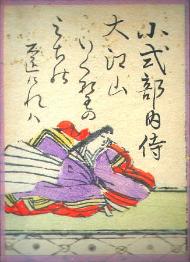 小式部内侍
大江山
いく野の
みちの
遠けれハ